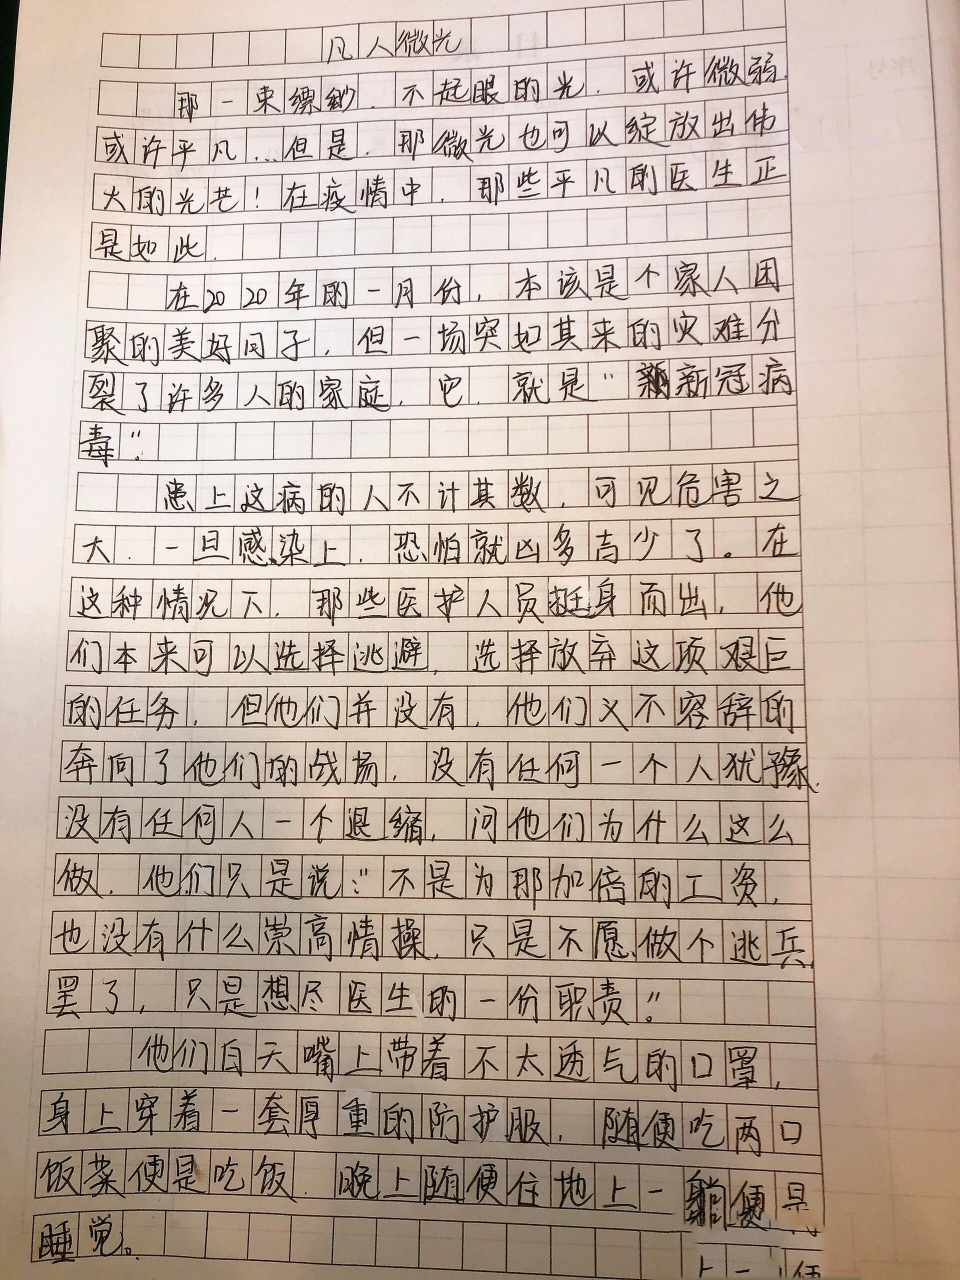 凡人微光
那一束缥缈、不起眼的光，或许微弱，
或许平凡…但是，那微光也可以绽放出伟
大的光芒！在疫情中，那些平凡的医生正
是如此。
在2020年的一月份，本该是个家人团
聚的美好日子，但一场突如其来的灾难分
裂了许多人的家庭，它，就是“新冠病
毒”。
患上这病的人不计其数，可见危害之
大，一旦感染上，恐怕就凶多吉少了。在
这种情况下，那些医护人员挺身而出，他
们本来可以选择逃避，选择放弃这项艰巨
的任务，但他们并没有，他们义不容辞的
奔向了他们的战场，没有任何一个人犹豫，
没有任何人一个退缩，问他们为什么这么
做，他们只是说：“不是为那加倍的工资，
也没有什么崇高情操，只是不愿做个逃兵
罢了，只是想尽医生的一份职责。”
他们白天嘴上带着不太透气的口罩，
身上穿着一套厚重的防护服，随便吃两口
饭菜便是吃饭，晚上随便往地上一躺便是
睡觉。